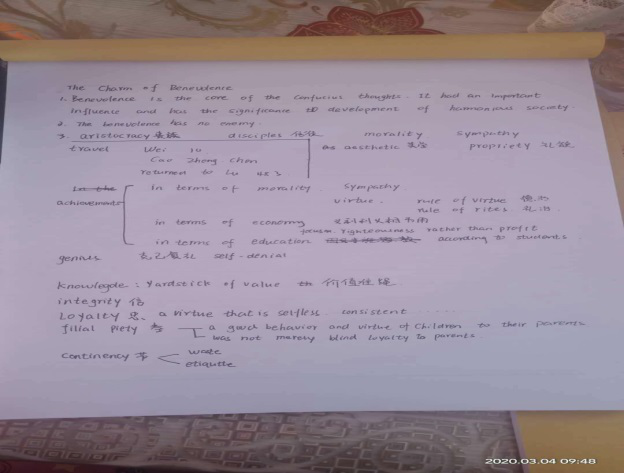 The Charm of Benevolence
1. Benevolence is the core of the Confucius thoughts. It had an important
influence and has the significance to development of harmonious society.
2. The benevolence has no enemy.
3. aristocracy 贵族 disciples morality sympathy
travel Wei as aesthetic propriety 礼
Cao Zheng Chen
returned to Lu 483
in terms of morality. sympathy
achievements virtue. rule of virtue
rule of rites. 礼治
in terms of economy
righteousness rather than profit
in terms of education according to students
genius 克己复礼 self-denial
Knowlegde: Yardstick of value 价值
integrity 信
Loyalty 忠. a virtue that is selfless consistent ......
filial piety 孝 a good behavior and virtue of children to their parents
was not merely blind loyalty to parents
Continency
waste
etiquette
2020.03.04 09:48